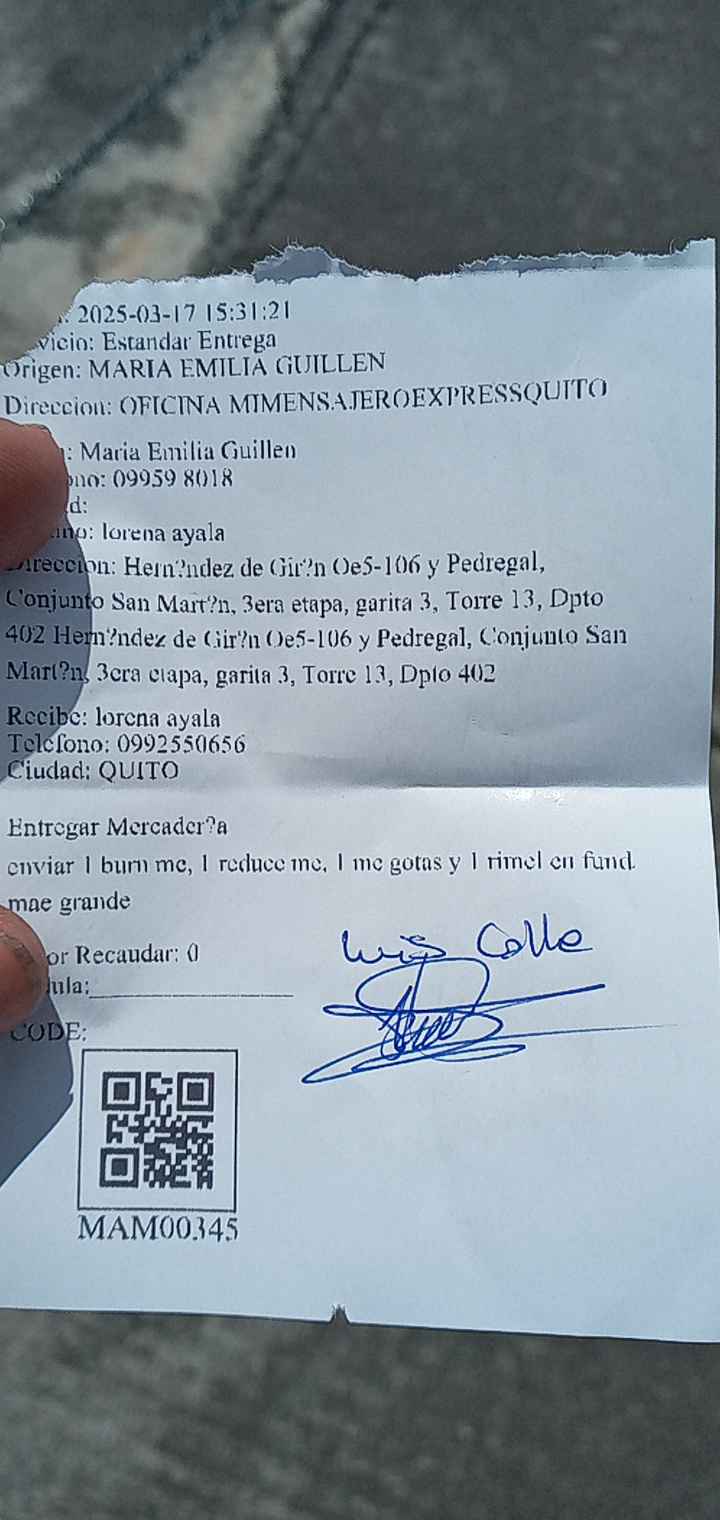 : 2025-03-17 15:31:21
vicio: Estandar Entrega
Origen: MARIA EMILIA GUILLEN
Direccion: OFICINA MIMENSAJEROEXPRESSQUITO
: Maria Emilia Guillen
ono: 09959 8018
d:
ino: lorena ayala
Direccion: Hern?ndez de Gir?n Oe5-106 y Pedregal,
Conjunto San Mart?n, 3era etapa, garita 3, Torre 13, Dpto
402 Hern?ndez de Gir?n Oe5-106 y Pedregal, Conjunto San
Mart?n, 3era etapa, garita 3, Torre 13, Dpto 402
Recibe: lorena ayala
Telefono: 0992550656
Ciudad: QUITO
Entregar Mercader?a
enviar 1 burn me, 1 reduce me, 1 me gotas y 1 rimel en fund
mae grande
or Recaudar: 0
Luis Calle
ula:
CODE:
MAM00345